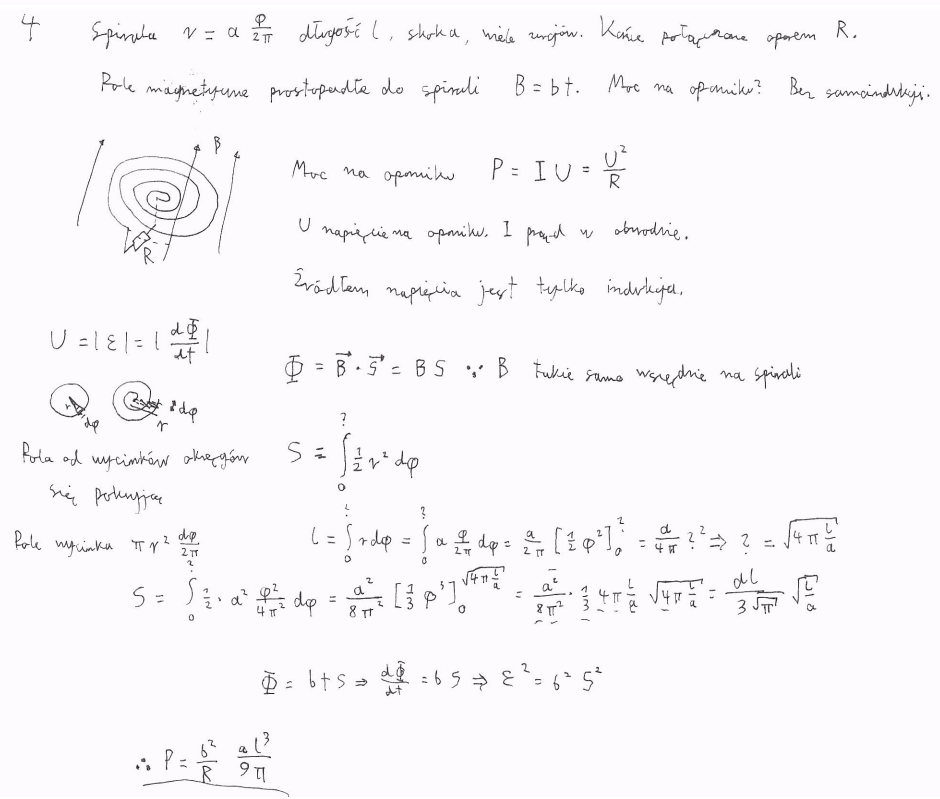 4 Spirala r = a φ/2π długość l, skoka, wiele zwojów. Końce połączone oporem R.
Pole magnetyczne prostopadłe do spirali B = bt. Moc na oporniku? Bez samoindukcji.
B
R
Moc na oporniku P = I U = U²/R
U napięcie na oporniku. I prąd w obwodzie.
Źródłem napięcia jest tylko indukcja.
U = |ε| = |dΦ/dt|
Φ = B⃗ · S⃗ = B S ∵ B takie samo wszędzie na spirali
dφ r dφ
Pola od wycinków okręgów
się pokrywają
S = ∫₀^? ½ r² dφ
Pole wycinka π r² dφ/2π
l = ∫₀^? r dφ = ∫₀^? a φ/2π dφ = a/2π [½ φ²]₀^? = a/4π ?² ⇒ ? = √(4π l/a)
S = ∫₀^? ½ · a² φ²/4π² dφ = a²/8π² [⅓ φ³]₀^√(4π l/a) = a²/8π² · ⅓ 4π l/a √(4π l/a) = al/3√π √(l/a)
Φ = btS ⇒ dΦ/dt = bS ⇒ ε² = b² S²
∴ P = b²/R al³/9π